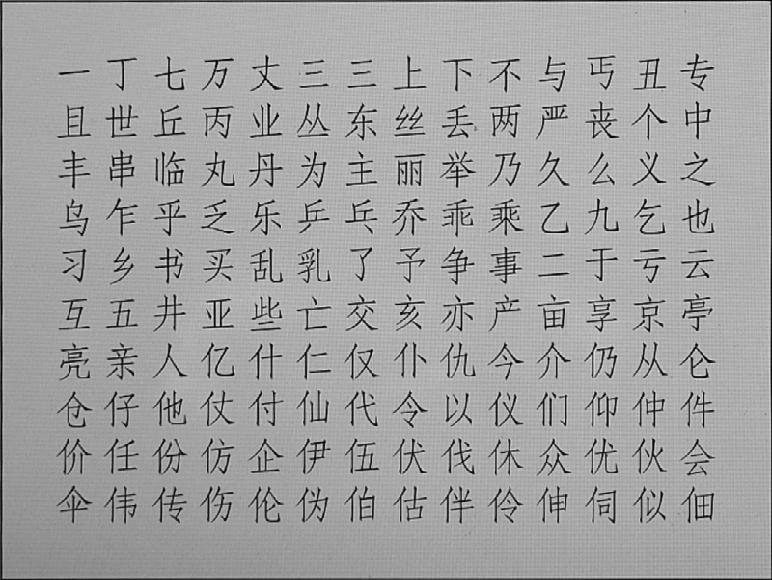 一丁七万丈三三上下不与丐丑专
且世丘丙业丛东丝丢两严丧个中
丰串临丸丹为主丽举乃久么义之
乌乍乎乏乐乒乓乔乖乘乙九乞也
习乡书买乱乳了予争事二于亏云
互五井亚些亡交亥亦产亩享京亭
亮亲人亿什仁仅仆仇今介仍从仑
仓仔他仗付仙代令以仪们仰仲件
价任份仿企伊伍伏伐休众优伙会
伞伟传伤伦伪伯估伴伶伸伺似佃